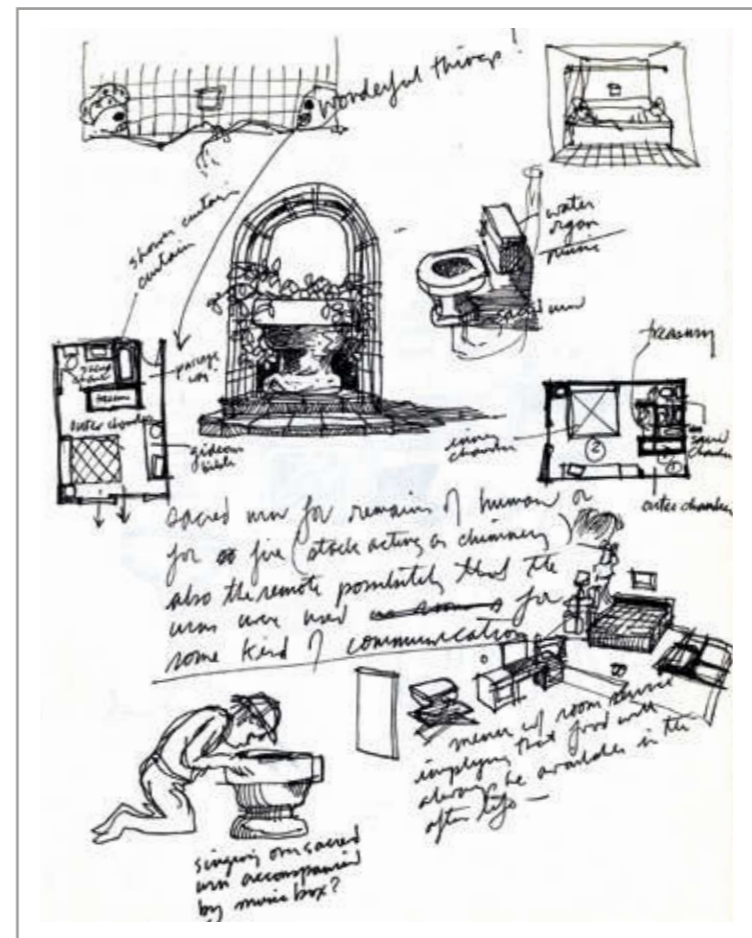 wonderful things!
shower curtain
curtain
water
organ
music
treasury
passage
way
outer chamber
gideon
bible
inner
chamber
2
outer chamber
sacred urn for remains of human or
for fire (stack acting as chimney)
also the remote possibility that the
urns were used for
some kind of communication
menu w/ room service
implying that food will
always be available in the
after life —
singing over sacred
urn accompanied
by music box?